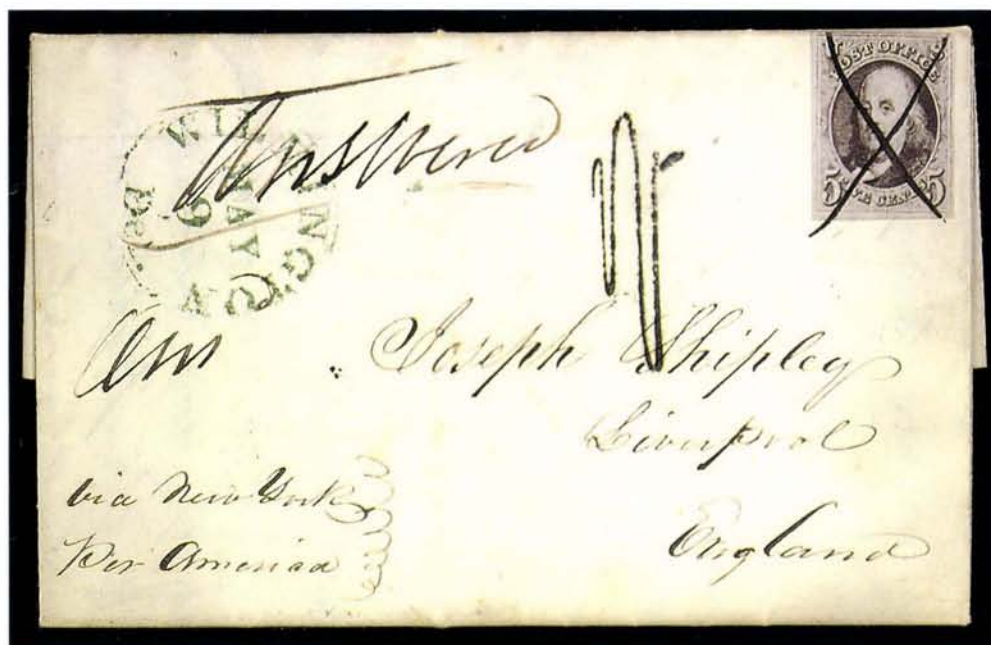 POST OFFICE
5 FIVE CENTS 5
WILMINGTON De.
MAY
9
Answered
Joseph Shipley
Liverpool
England
via New York
Per America